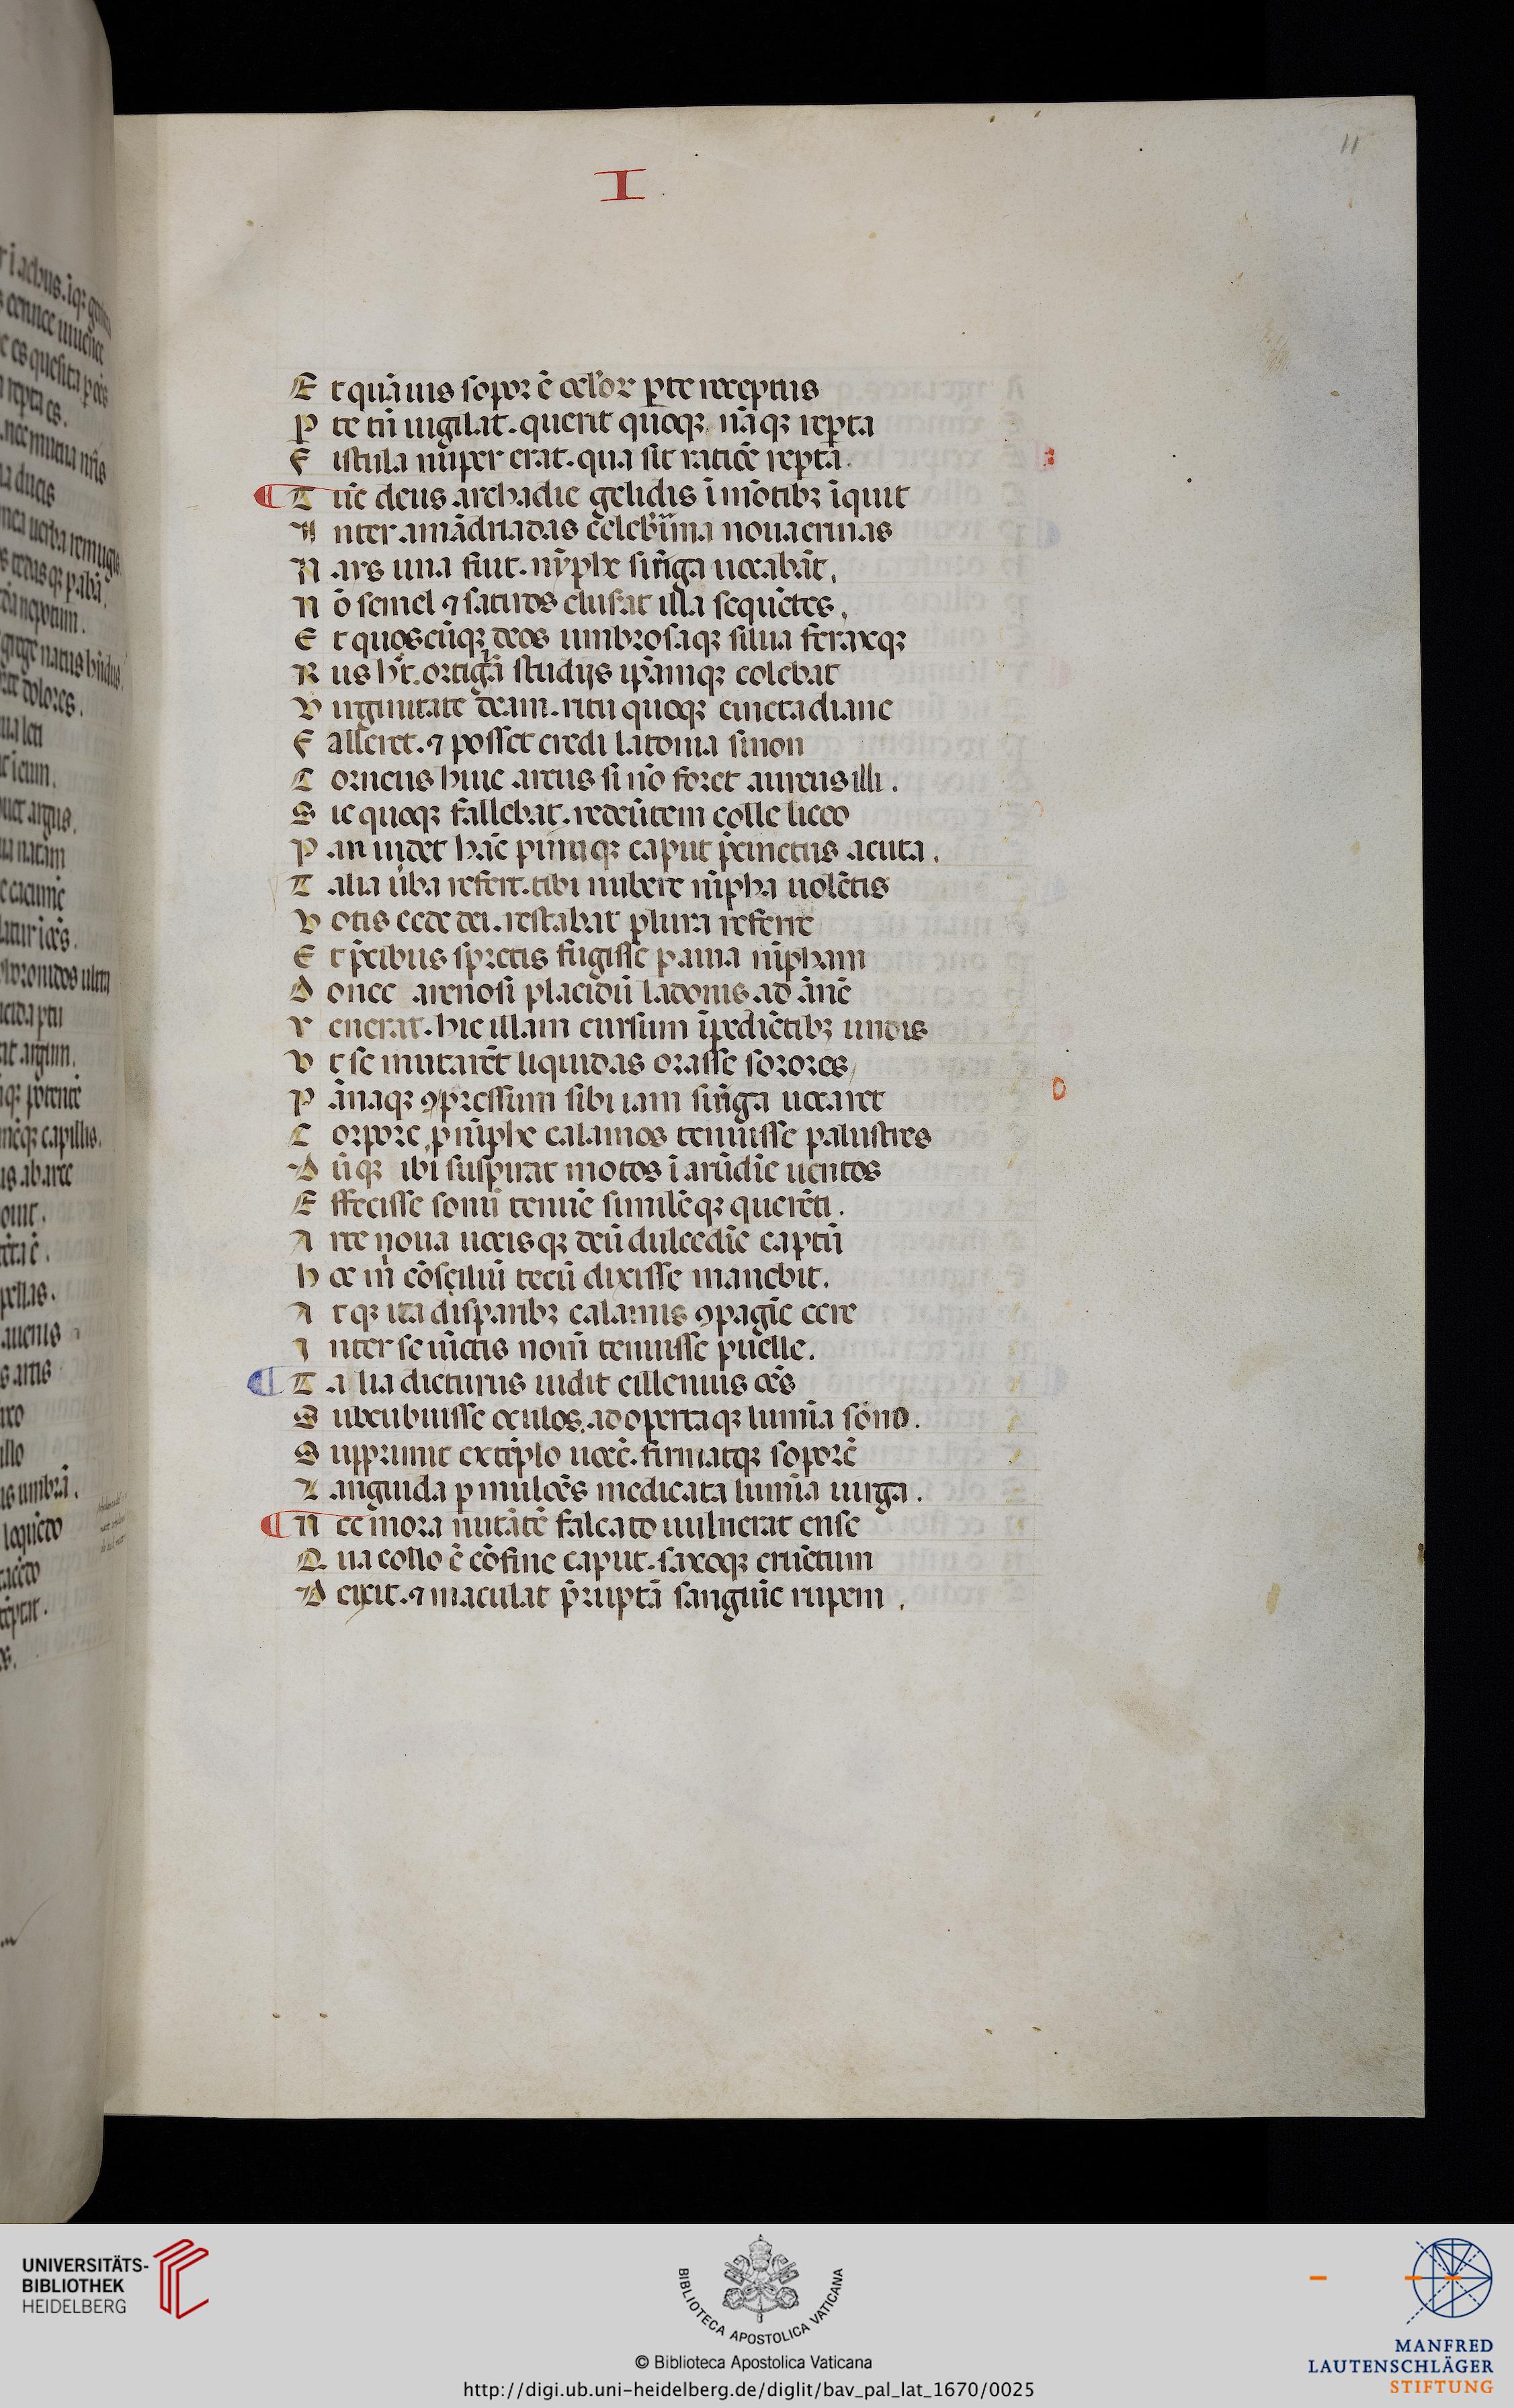 I
11
E t quāuis sopor ē oculoꝝ ꝑte receptus
P te tn̄ uigilat. querit quoqꝫ nāqꝫ reꝑta
F istula nuper erat. qua sit ratiōe reꝑta.
T ūc deus archadie gelidis ī mōtibꝫ īquit
I nter amādriadas celeb̄rima nonacrinas
N ays una fuit. nȳphe siringa uocabāt.
N ō semel ⁊ satiros elusat illa sequētes.
E t quoscūqꝫ deos umbrosaqꝫ silua feraxqꝫ
R us ht̄. ortigiā studijs ip̄amqꝫ colebat
V irginitate deam. ritu quoqꝫ cincta diane
F alleret. ⁊ posset credi latonia si non
C orneus huic arcus si nō foret aureus illi.
S ic quoqꝫ fallebat. redeūtem colle liceo
P an uidet hāc pinuqꝫ caput p̄cinctus acuta.
T alia u̇ba refert. tibi nubere nīpha uolētis
V otis cede dei. restabat plura referre
E t p̄cibus spretis fugisse pauia nīpham
D onec arenosi placidū ladonis ad ānē
V enerat. hic illam cursum īpediētibꝫ undis
V t se mutarēt liquidas orasse sorores
P ānaqꝫ ꝯpressum sibi iam siringa uocaret
C orpore ꝓ nīphe calamos tenuisse palustres
D ūqꝫ ibi suspirat motos ī arūdīe uentos
E ffecisse sonū tenuē similēqꝫ querēti.
A rte noua uocisqꝫ deū dulcedīe captū
H oc m̄ cōsciliū tecū dixisse manebit.
A tqꝫ ita disparibꝫ calamis ꝯpagīe cere
I nter se iūctis nom̄ tenuisse puelle.
T alia dicturus uidit cillenius oēs
S ubcubuisse oculos. adopertaqꝫ lumīa sōno.
S upprimit extēplo uocē. firmatqꝫ soporē
L anguida ꝑmulcēs medicata lumīa uirga.
N ec mora nutātē falcato uulnerat ense
Q ua collo ē cōfine caput. saxoqꝫ cruētum
D eicit. ⁊ maculat p̄ruptā sanguīe rupem.
UNIVERSITÄTS-
BIBLIOTHEK
HEIDELBERG
BIBLIOTECA APOSTOLICA VATICANA
© Biblioteca Apostolica Vaticana
http://digi.ub.uni-heidelberg.de/diglit/bav_pal_lat_1670/0025
MANFRED
LAUTENSCHLÄGER
STIFTUNG